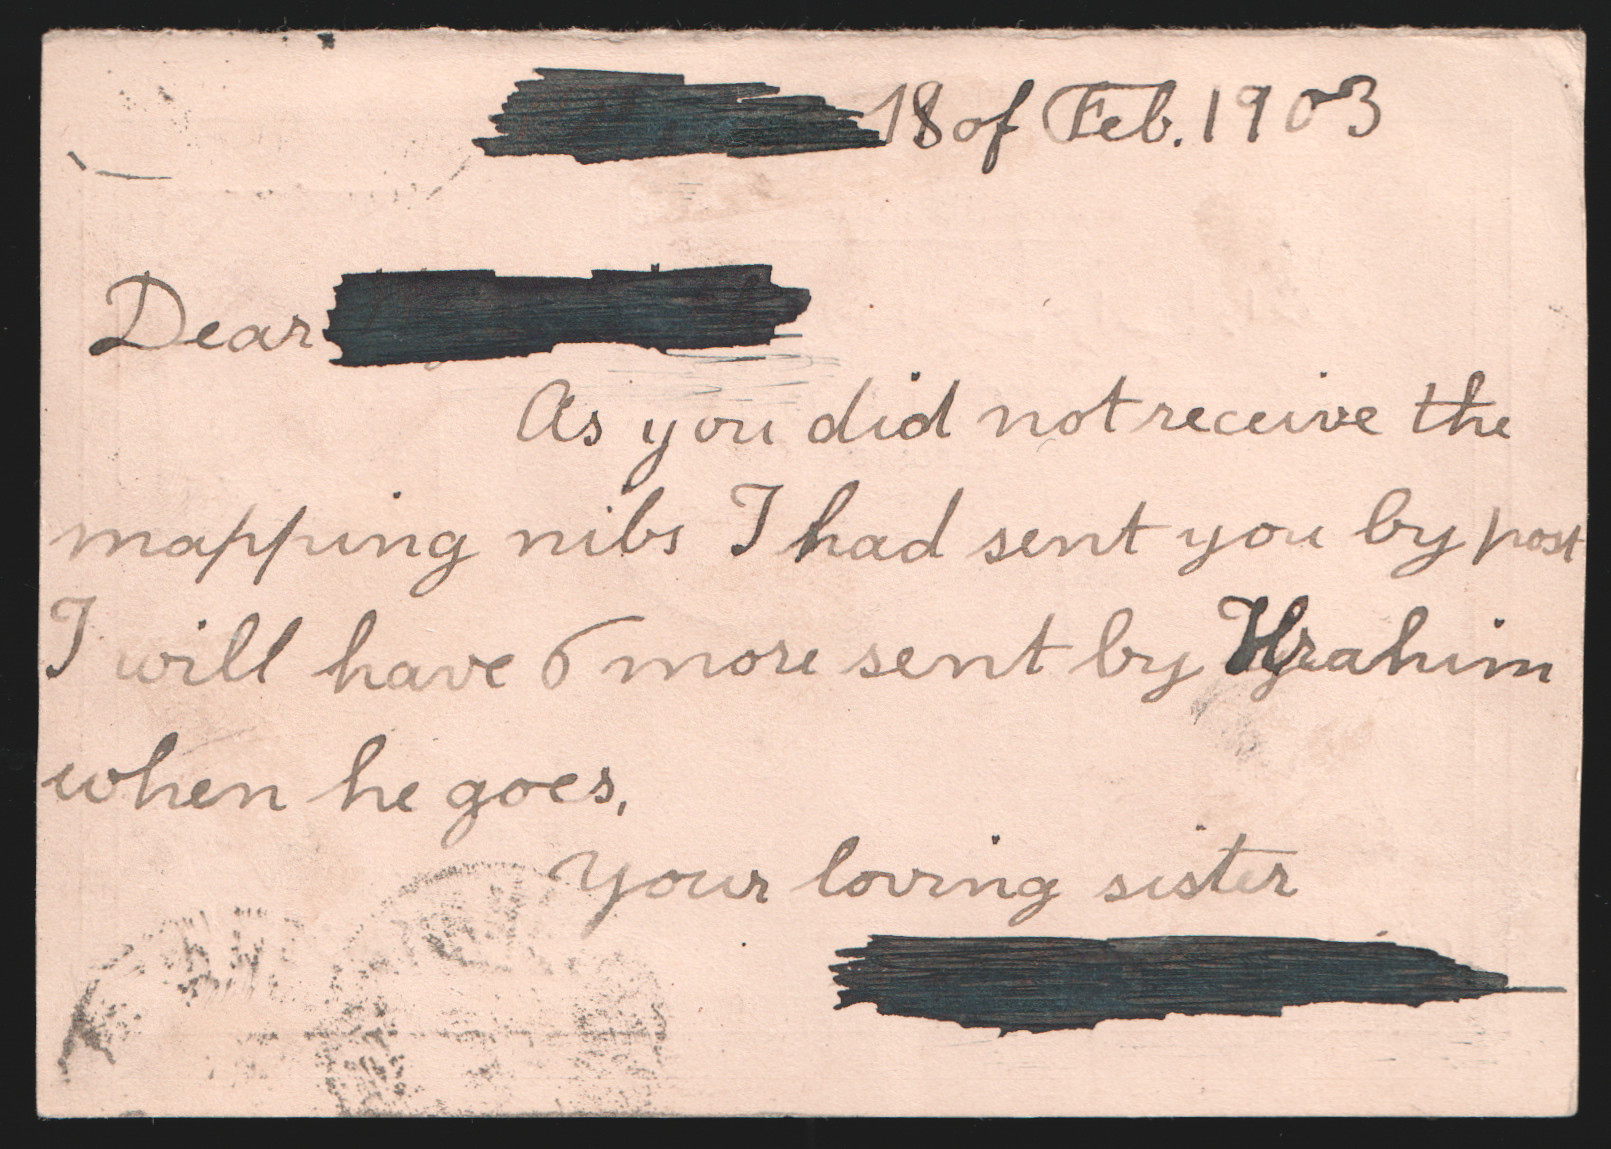 18 of Feb. 1903
Dear
As you did not receive the
mapping nibs I had sent you by post
I will have 6 more sent by
when he goes,
Your loving sister